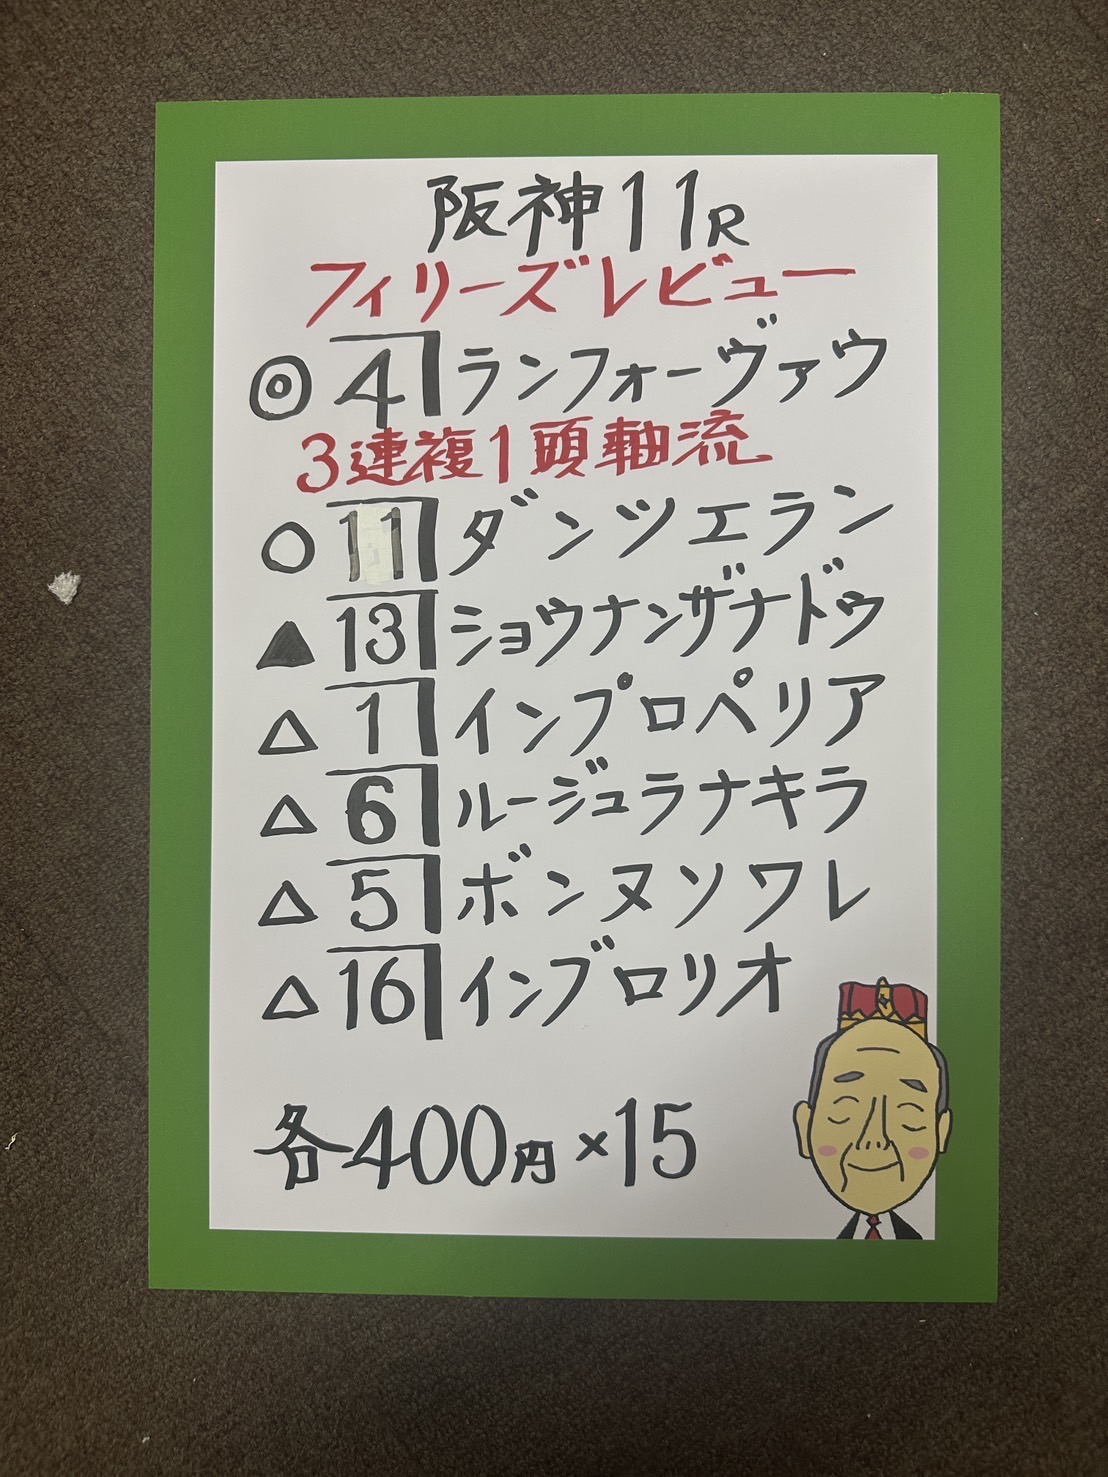 阪神11R
フィリーズレビュー
◎ 4 ランフォーヴァウ
3連複1頭軸流
○ 11 ダンツエラン
▲ 13 ショウナンザナドゥ
△ 1 インプロペリア
△ 6 ルージュラナキラ
△ 5 ボンヌソワレ
△ 16 インブロリオ
各400円×15